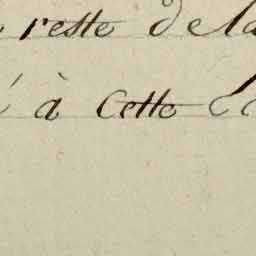 reste de la
à Cette